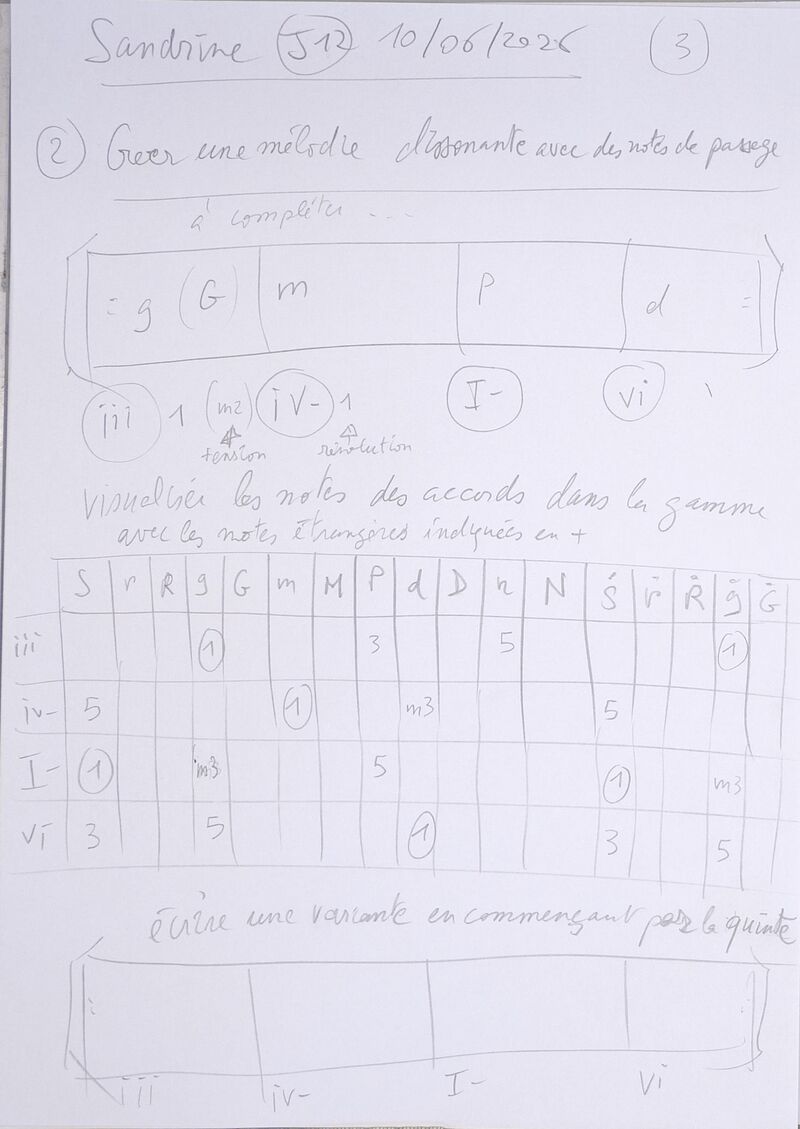 Sandrine J12 10/06/2026 3
2 Créer une mélodie dissonante avec des notes de passage
à compléter ...
: g (G) m P d :
iii 1 (m2) iv- 1 I- vi
tension résolution
visualiser les notes des accords dans la gamme
avec les notes étrangères indiquées en +
S r R g G m M P d D n N Ṡ ṙ Ṙ ġ Ġ
iii 1 3 5 1
iv- 5 1 m3 5
I- 1 m3 5 1 m3
vi 3 5 1 3 5
écrire une variante en commençant par la quinte
: :
iii iv- I- vi